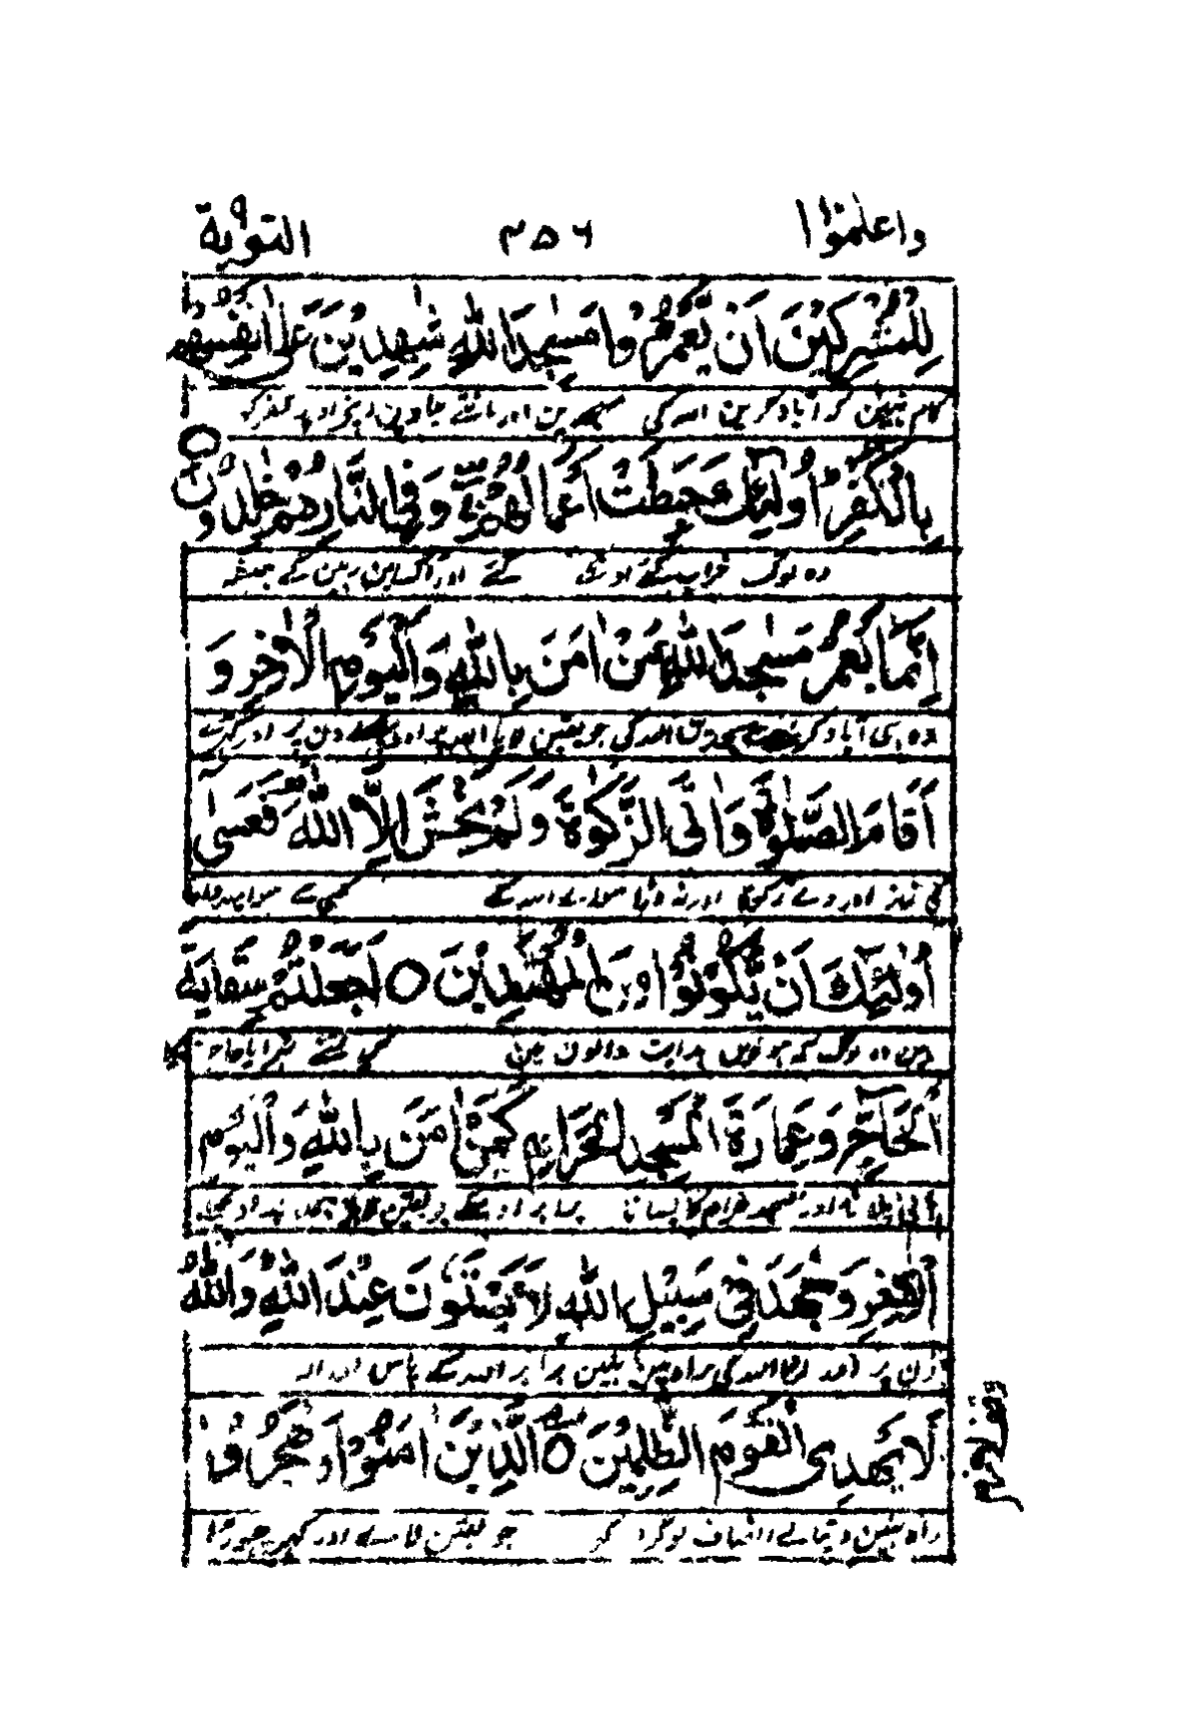 واعلموا ٣٥٦ التوبة ٩
لِلْمُشْرِكِيْنَ اَنْ يَّعْمُرُوْا مَسٰجِدَ اللّٰهِ شٰهِدِيْنَ عَلٰٓى اَنْفُسِهِمْ
کام نہین کہ آباد کرین اللہ کی مسجدین اور
بِالْكُفْرِ اُولٰٓئِكَ حَبِطَتْ اَعْمَالُهُمْ وَفِی النَّارِ هُمْ خٰلِدُوْنَ ○
وہ لوگ خراب گئے اون کے اور آگ مین رہین گے ہمیشہ
اِنَّمَا يَعْمُرُ مَسٰجِدَ اللّٰهِ مَنْ اٰمَنَ بِاللّٰهِ وَالْيَوْمِ الْاٰخِرِ وَ
وہ ہی آباد کرے مسجدین اللہ کی جو یقین لایا اللہ پر اور پچھلے دن پر اور کھڑے
اَقَامَ الصَّلٰوةَ وَاٰتَی الزَّكٰوةَ وَلَمْ يَخْشَ اِلَّا اللّٰهَ فَعَسٰٓى
کی نماز اور دے زکوٰة اور نہ ڈرا سوائے اللہ کے
اُولٰٓئِكَ اَنْ يَّكُوْنُوْا مِنَ الْمُهْتَدِيْنَ ○ اَجَعَلْتُمْ سِقَايَةَ
وہ لوگ کہ ہوئیں ہدایت والون مین کس لئے ٹھرایا
الْحَآجِّ وَعِمَارَةَ الْمَسْجِدِ الْحَرَامِ كَمَنْ اٰمَنَ بِاللّٰهِ وَالْيَوْمِ
پانی پلانا اور مسجد حرام کا بسانا برابر اوسکے جو یقین لایا اللہ پر اور پچھلے
الْاٰخِرِ وَجٰهَدَ فِیْ سَبِيْلِ اللّٰهِ لَا يَسْتَوٗنَ عِنْدَ اللّٰهِ وَاللّٰهُ
دن پر اور لڑا اللہ کی راہ مین نہین برابر اللہ کے پاس اور اللہ
لَا يَهْدِی الْقَوْمَ الظّٰلِمِيْنَ ○ اَلَّذِيْنَ اٰمَنُوْا وَهَاجَرُوْا
راہ نہین دیتا بے انصاف لوگون کو جو یقین لائے اور گھر چھوڑ